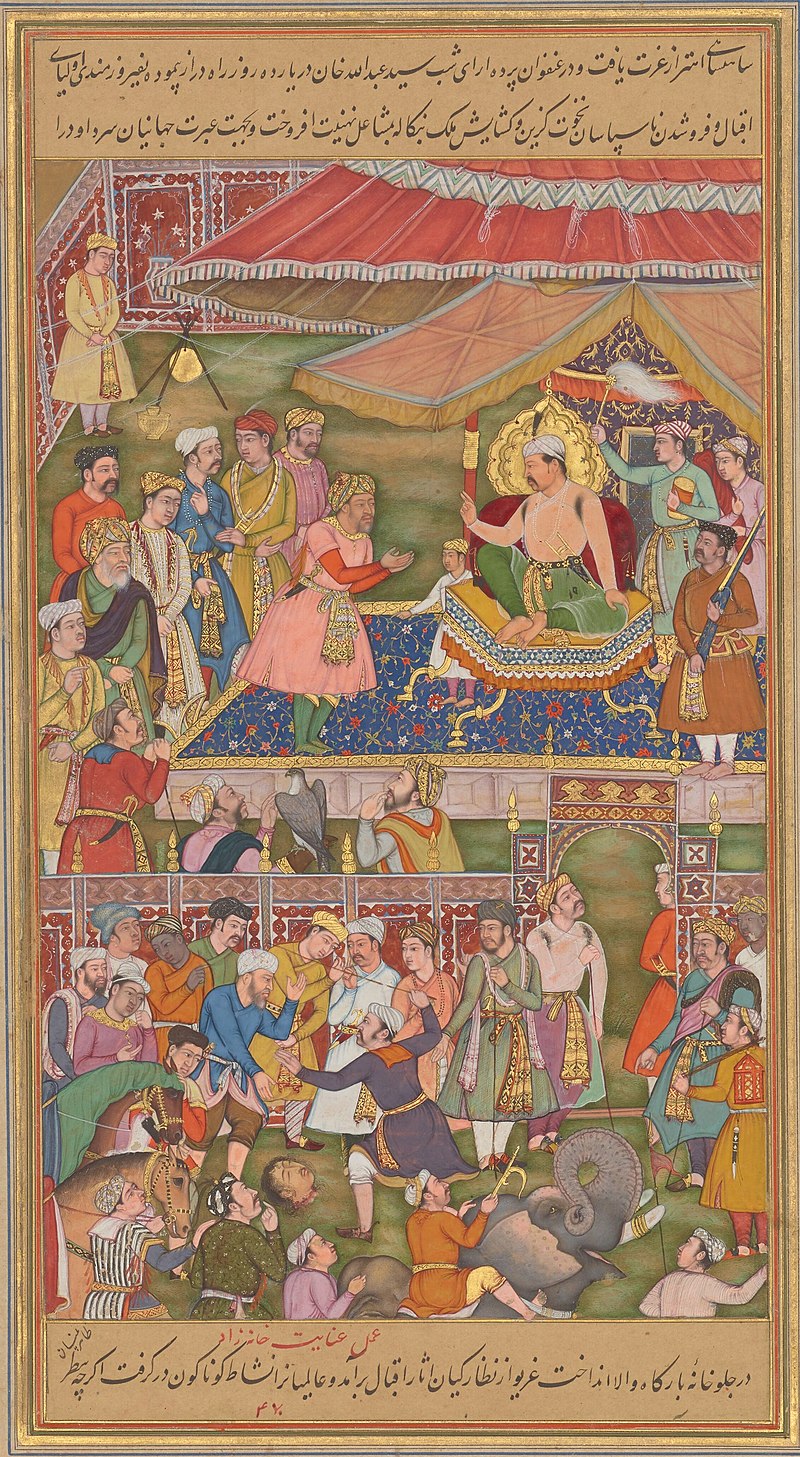 اهتزاز عزت یافت و در عنفوان پرده ارای شب سید عبد الله خان در یازده روز راه دراز پیموده نفیر فیروزمندی اولیای
اقبال و فروشدن ناسپاسان نخوت گزین و کشایش ملک بنکاله مشاعل تهنیت افروخت و بجهت عبرت جهانیان سر داود را
عمل عنایت خانه زاد
در جلوخانهٔ بارگاه والا انداخت غریو از نظارگیان اثار اقبال برآمد و عالمیانرا نشاط کوناکون در گرفت اگرچه